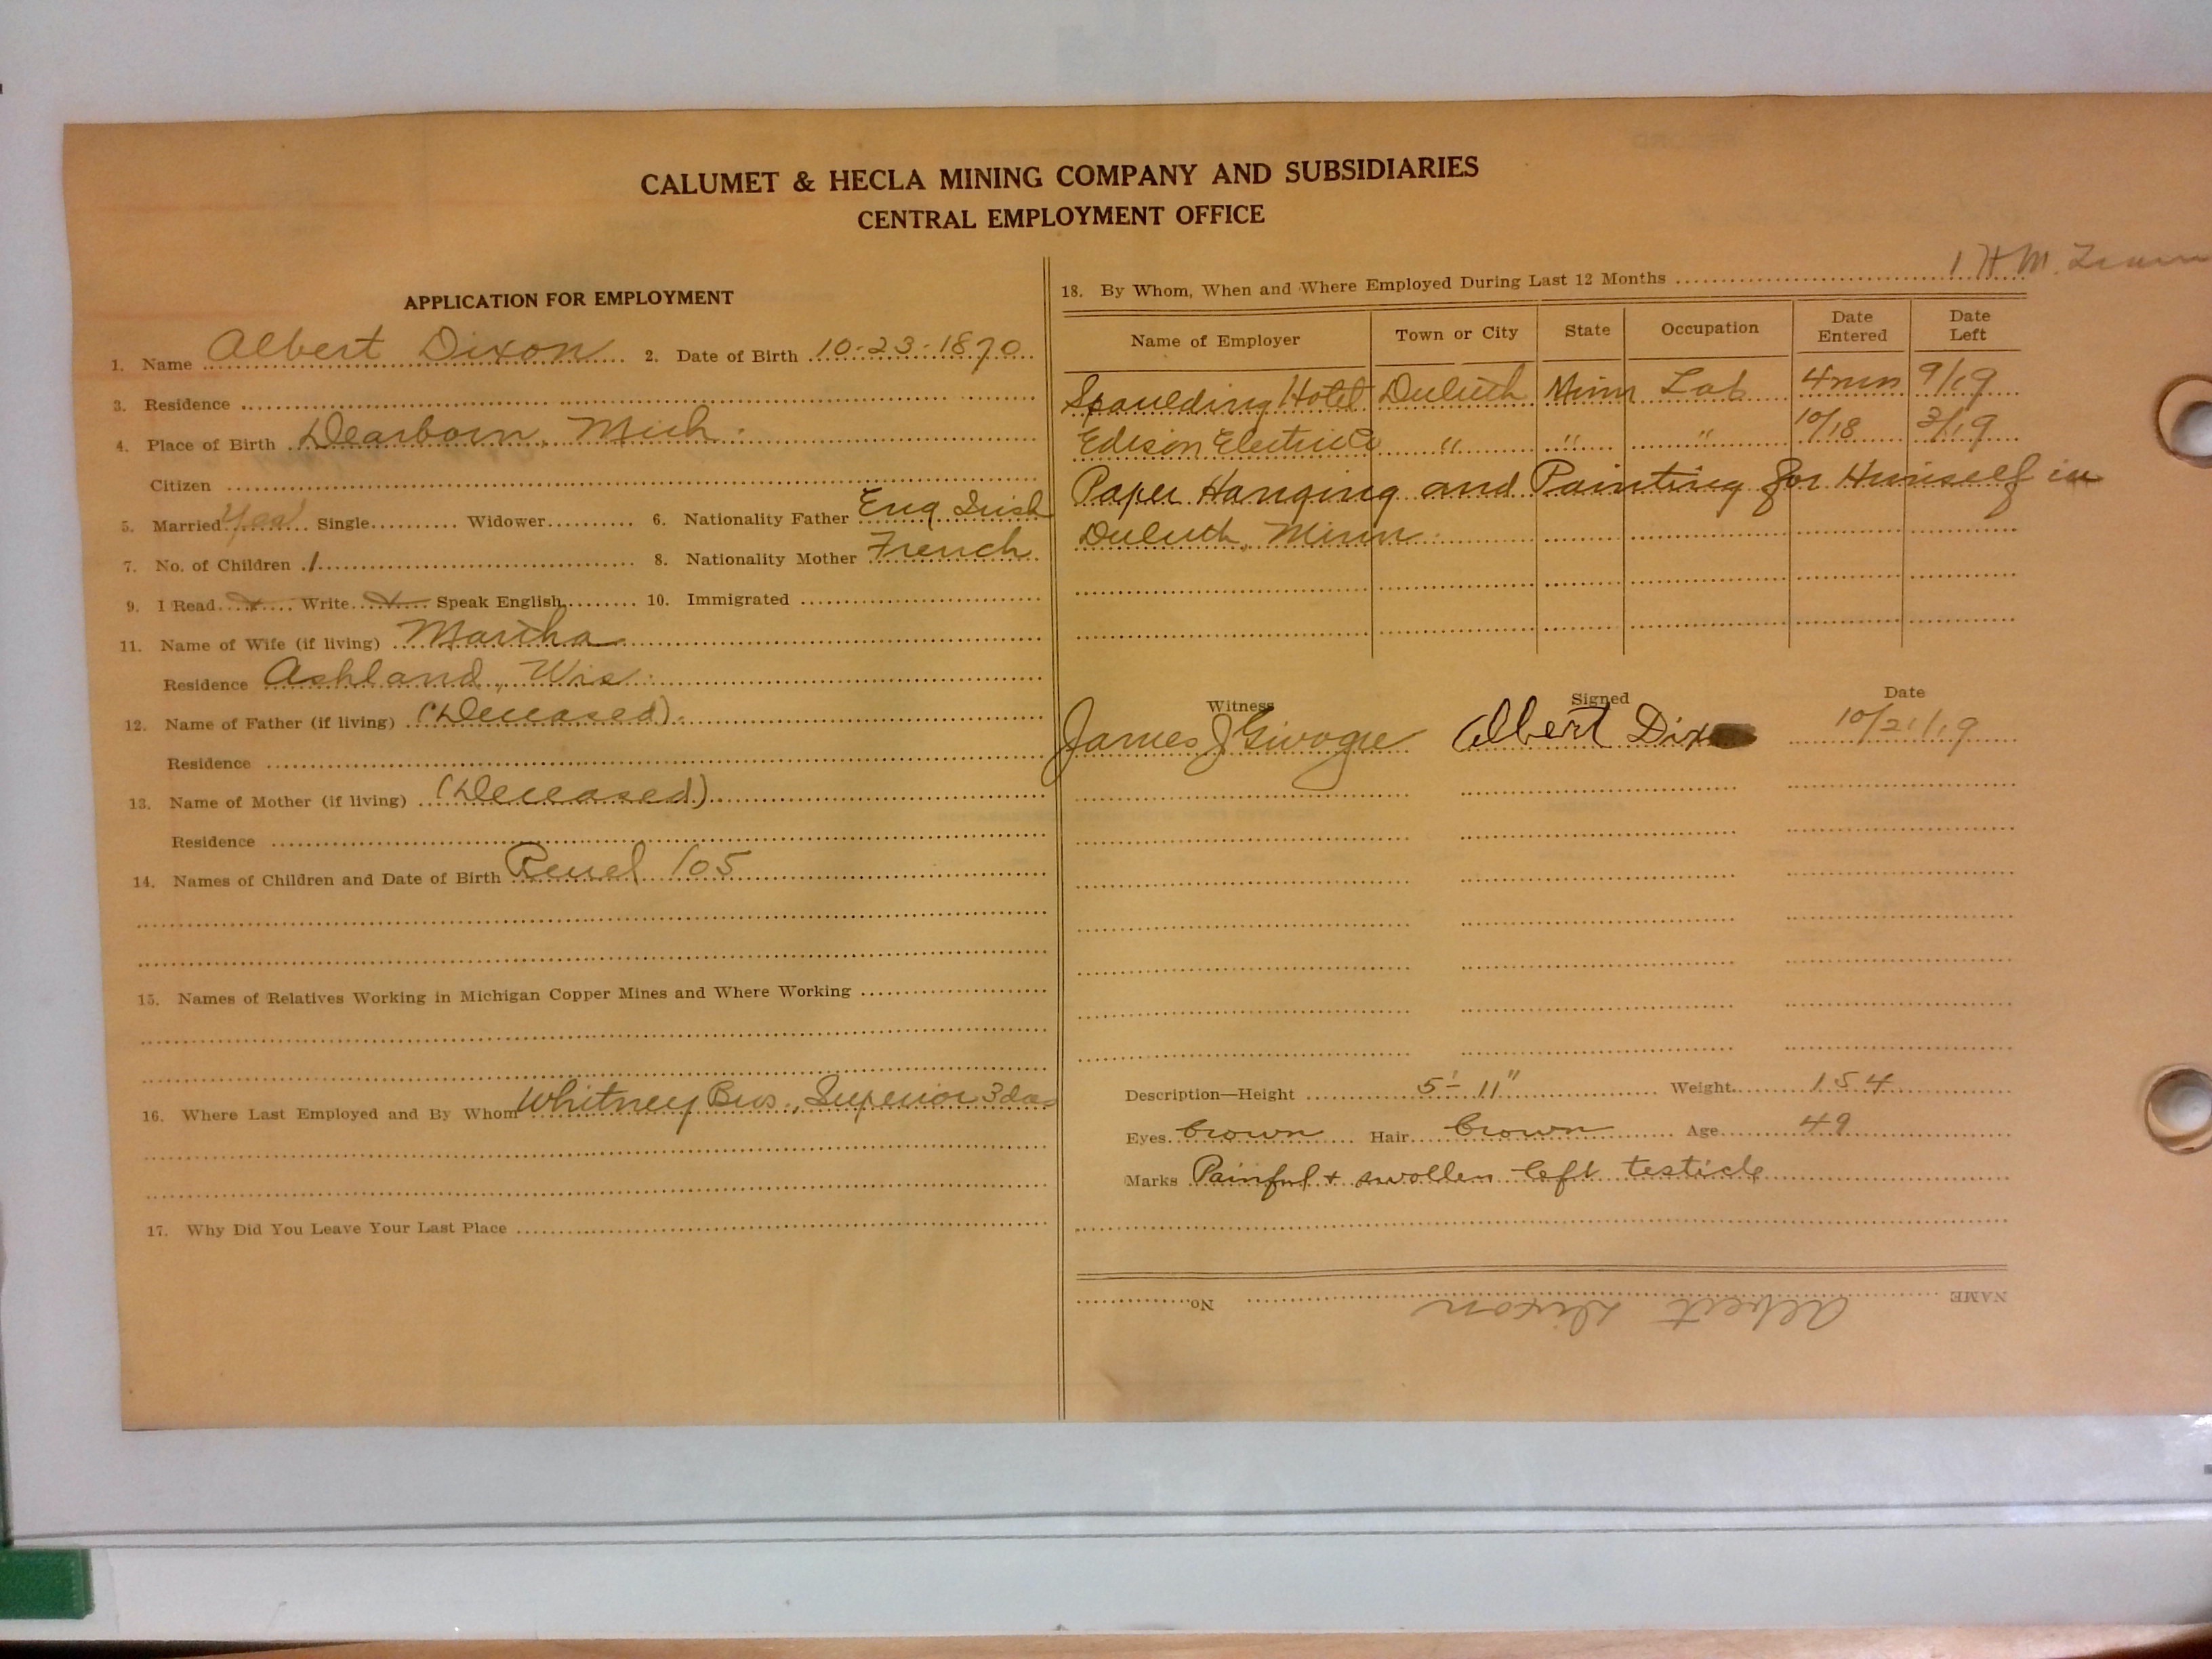 CALUMET & HECLA MINING COMPANY AND SUBSIDIARIES
CENTRAL EMPLOYMENT OFFICE
APPLICATION FOR EMPLOYMENT
1. Name Albert Dixon 2. Date of Birth 10-23-1870
3. Residence
4. Place of Birth Dearborn, Mich.
Citizen
5. Married Yes Single Widower 6. Nationality Father Eng Irish
7. No. of Children 1 8. Nationality Mother French
9. I Read x Write x Speak English 10. Immigrated
11. Name of Wife (if living) Martha
Residence Ashland, Wis.
12. Name of Father (if living) (Deceased).
Residence
13. Name of Mother (if living) (Deceased)
Residence
14. Names of Children and Date of Birth 105
15. Names of Relatives Working in Michigan Copper Mines and Where Working
16. Where Last Employed and By Whom Whitney Bros., Superior 3 das
17. Why Did You Leave Your Last Place
18. By Whom, When and Where Employed During Last 12 Months 1 H M.
Name of Employer Town or City State Occupation Date Entered Date Left
Spaulding Hotel Duluth Minn Lab 4 mn 9/19
Edison Electric " " " 10/18 3/19
Paper Hanging and Painting for Himself in
Duluth, Minn.
Witness Signed Date
James J Albert Dixon 10/21/19
Description—Height 5'-11" Weight 154
Eyes brown Hair brown Age 49
Marks Painful + swollen left testicle
NAME Albert Dixon No.